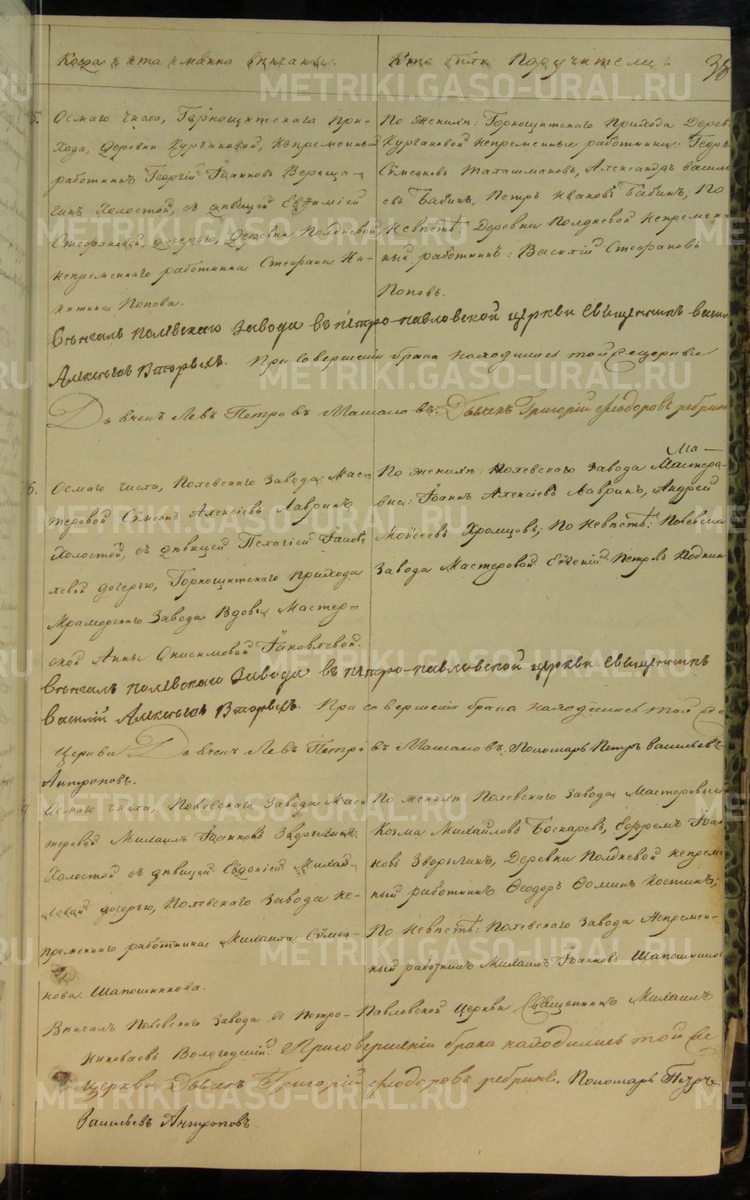 Когда и кто именно венчаны. Кто были Поручители: 38
5. Осмаго числа, Горнощитскаго При-
хода, Деревни Кургановой, Непременный
работникъ Георгій Іоанновъ
Холостой, съ девицей Евфиміей
Стефановой, дочерью, Деревни Полдневой,
непременнаго работника Стефана Ни-
китина Попова.
По женихѣ: Горнощитскаго Прихода Дерев
Кургановой Непременные работники: Георг
Сѵмеоновъ Талашмановъ, Александръ васил
евъ Бабинъ, Петръ Ивановъ Бабинъ; По
Невѣстѣ: Деревни Полдневой Непремен
ный работникъ: Василій Стефановъ
Поповъ.
Вѣнчалъ полевскаго Завода въ петро-павловской церкви Священникъ васил
Алексѣевъ Вторыхъ. При совершеніи брака находились той же церкви
Дьячекъ Левъ Петровъ Машановъ. Дьячекъ Григорій Феодоровъ ребрин
6. Осмаго числа, Полевскаго Завода Мас-
теровой Сѵмеонъ Алексіевъ Лавринъ
Холостой, съ девицей Пелагіей Іаков
левой дочерью, Горнощитскаго Прихода
Мраморскаго Завода Вдовы Мастер-
ской Анны Онисимовой Іаковлевой.
По женихѣ: Полевскаго Завода Мастера-
вые: Іоаннъ Алексіевъ Лавринъ, Андрей
Моѵсеевъ Хромцовъ; По Невѣстѣ: Полевска
Завода Мастеровой Евгеній Петровъ
Вѣнчалъ полевскаго Завода въ петро-павловской церкви Священникъ
василій Алексѣевъ Вторыхъ. При совершеніи брака находились той же
Церкви Дьячекъ Левъ Петровъ Машановъ. Пономарь Петръ васильевъ
Антроповъ.
Осмаго числа, Полевскаго Завода Мас-
теровой Михаилъ Іоанновъ
Холостой съ девицей Евдокіей Михай-
ловой дочерью, Полевскаго Завода Не-
пременнаго работника Михаила Сѵмео-
нова Шапошникова.
По женихѣ: Полевскаго Завода Мастеровые
Козма Михайловъ Боскаревъ, Ефремъ Іоан
новъ Зверыгинъ, Деревни Полдневой непрем
ный работникъ Феодоръ Фоминъ Костинъ;
По Невѣстѣ: Полевскаго Завода Непремен-
ный работникъ Михаилъ Іоанновъ Шапошник
Вѣнчалъ Полевскаго Завода въ Петро-Павловской Церкви Священникъ Михаилъ
Николаевъ Вологодскій. При совершеніи брака находились той же
церкви Дьячекъ Григорій Феодоровъ ребринъ. Пономарь Петръ
Васильевъ Антроповъ.
METRIKI.GASO-URAL.RU